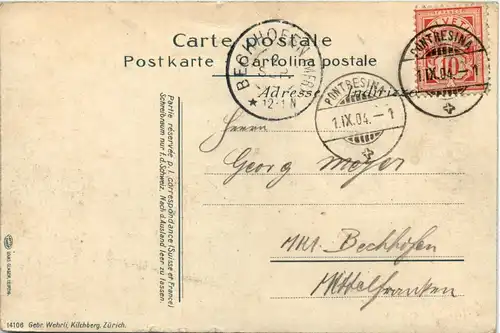 Carte postale
Postkarte Cartolina postale
Adresse
HELVETIA
10
PONTRESINA
1.IX.04.–1
PONTRESINA
1.IX.04.–1
BECHHOFEN
2
SEP
12-1 N
Herrn
Georg Meyer
Mkt. Bechhofen
Mittelfranken
Partie réservée p. l. correspondance (Suisse et France)
Schreibraum nur f. d. Schweiz. Nach d. Ausland leer zu lassen.
14106 Gebr. Wehrli, Kilchberg, Zürich.